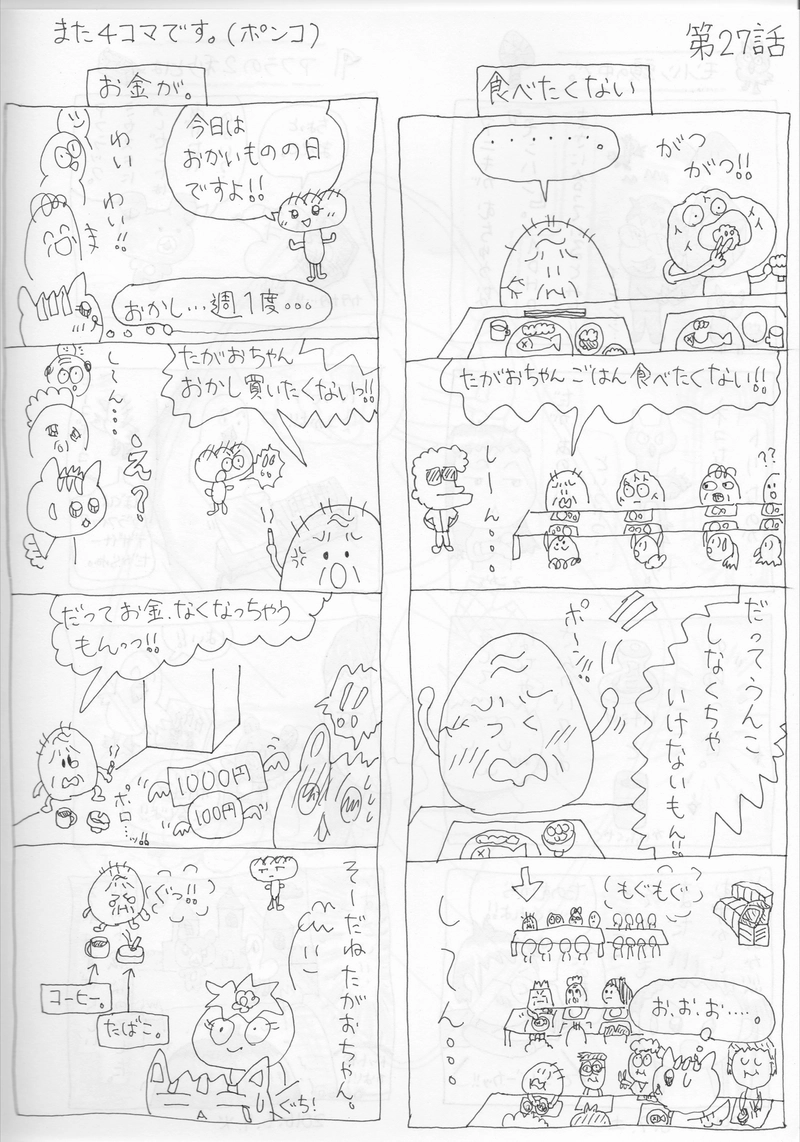 また4コマです。(ポンコ)
第27話
食べたくない
・・・・・・。
がつ
がつ!!
たがおちゃんごはん食べたくない!!
しーん・・・
??
だってうんこ
しなくちゃ
いけないもん!!
ポーン!!
もぐもぐ
お、お、お・・・・。
し〜ん・・・
お金が。
今日は
おかいものの日
ですよ!!
わい わい!!
おかし…週1度・・・
たがおちゃん
おかし買いたくないっ!!
!!
し〜ん・・・
え?
だってお金、なくなっちゃう
もんっっ!!
!!
1000円
100円
ポロ…ッ!!
そーだねたがおちゃん。
ぐっ!!
コーヒー。
たばこ。
ぐち!